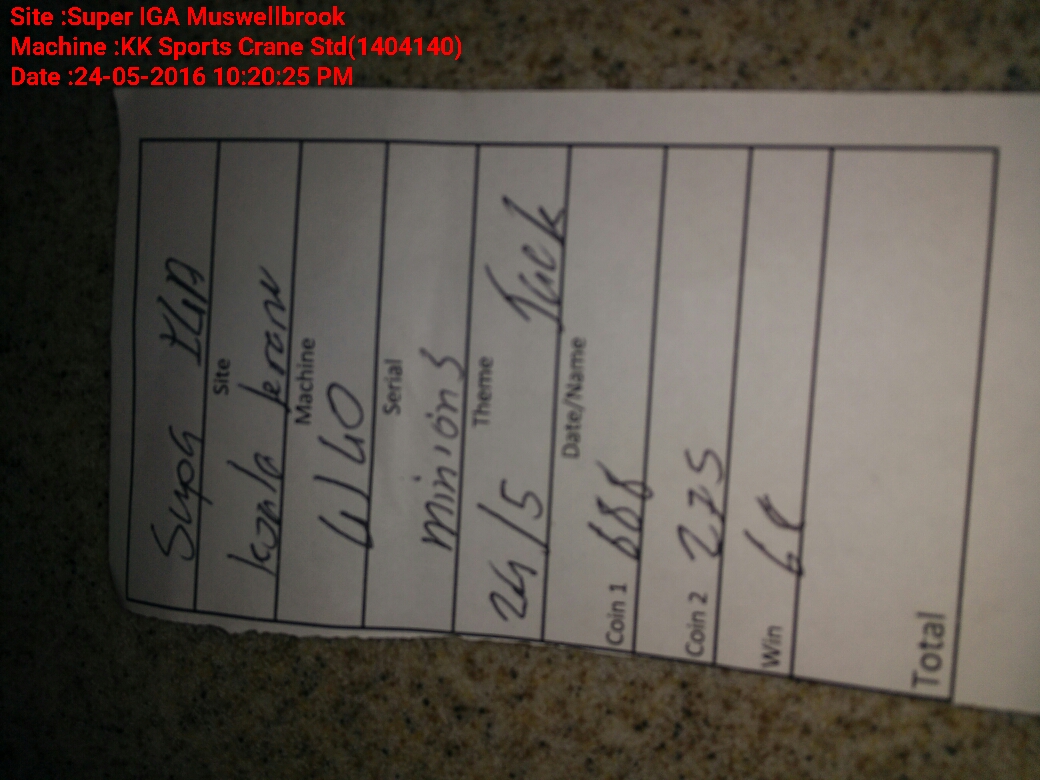 Site :Super IGA Muswellbrook
Machine :KK Sports Crane Std(1404140)
Date :24-05-2016 10:20:25 PM
Supa IGA
Site
koala krane
Machine
4140
Serial
minions
Theme
24/5 Jack
Date/Name
Coin 1 688
Coin 2 275
Win
Total